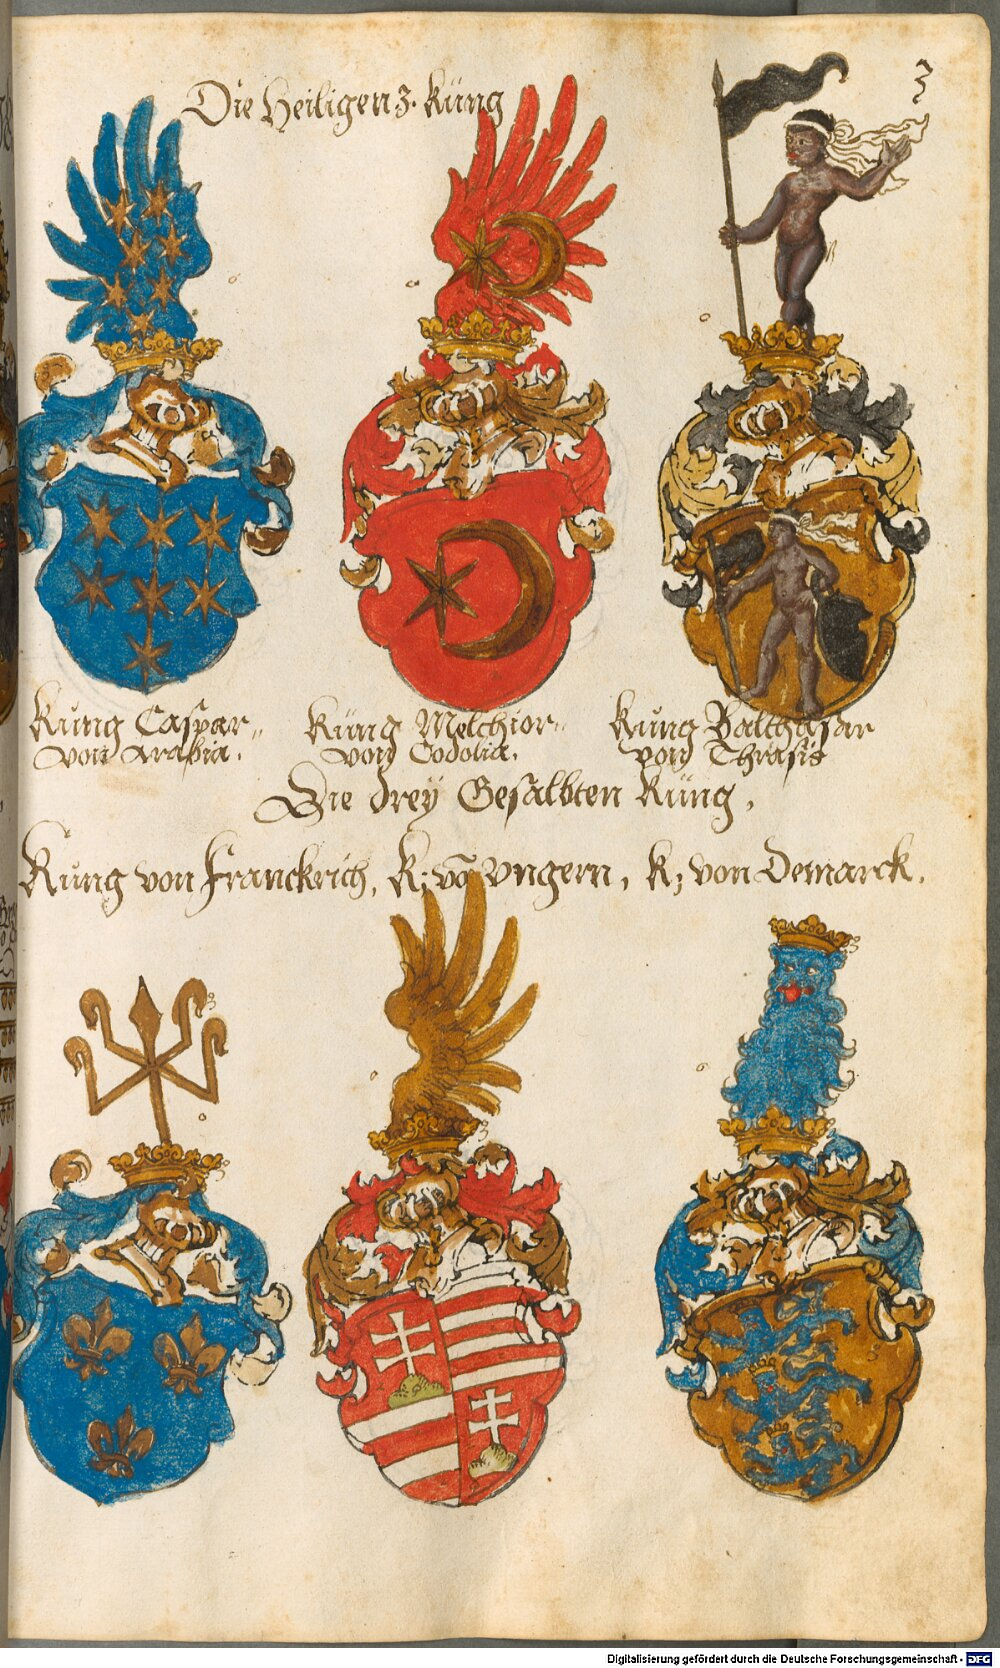 Die Heiligen 3. Küng
3
Kung Caspar
von Arabia.
Küng Melchior
von Codolia.
Kung Balthasar
von Thrasis
Die drey Gesalbten Küng,
Kung von Franckrich, K; vō Vngern, K; von Demarck.
Digitalisierung gefördert durch die Deutsche Forschungsgemeinschaft - DFG